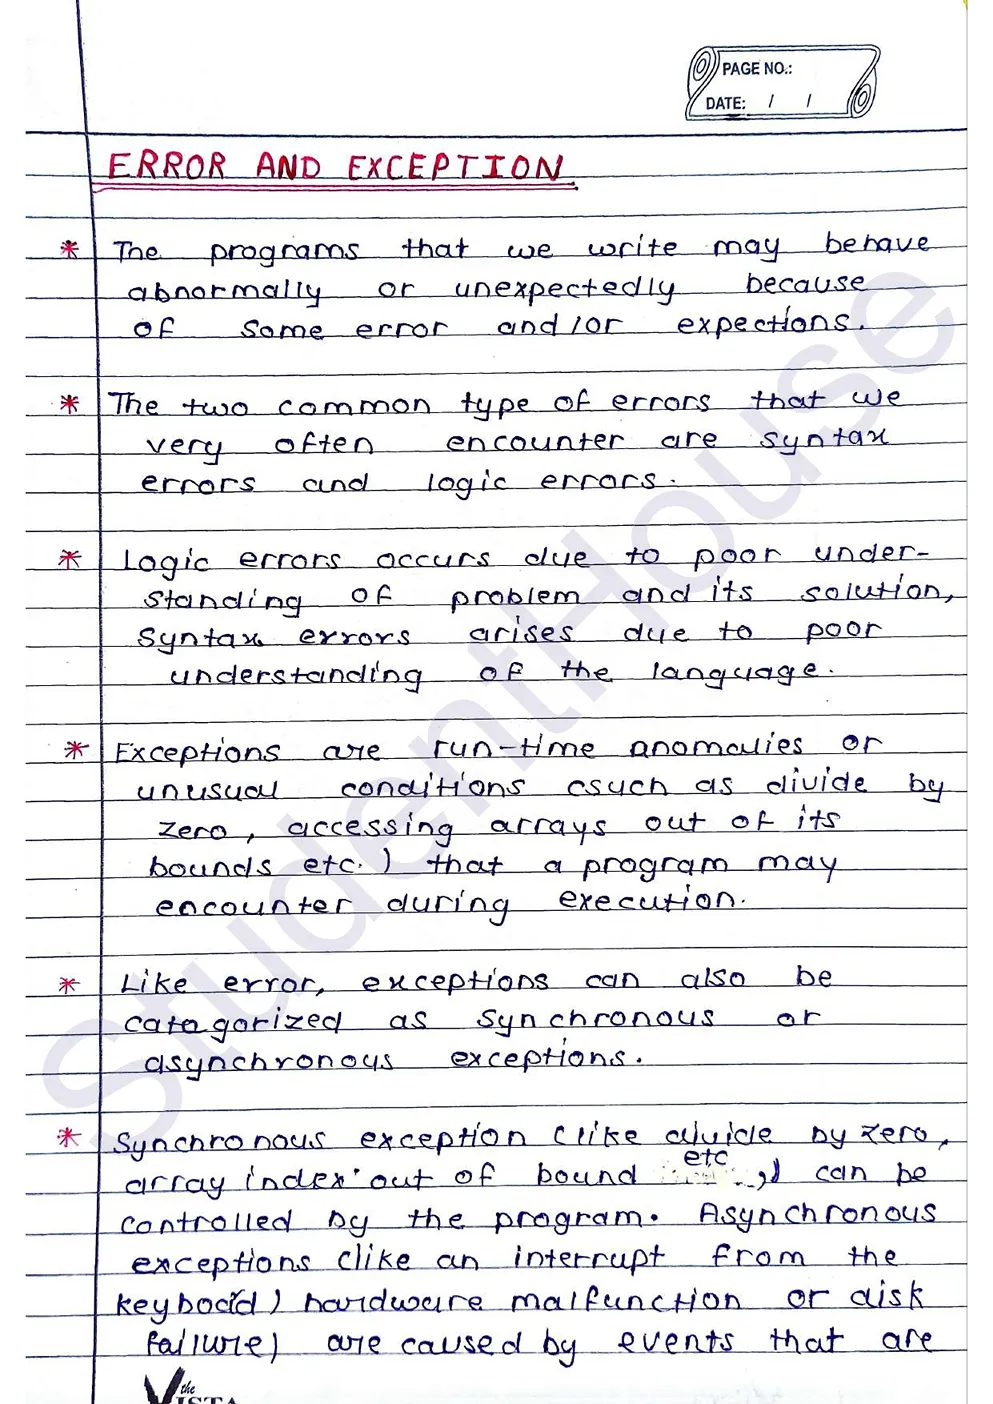 PAGE NO.:
DATE: / /
ERROR AND EXCEPTION
* The programs that we write may behave
abnormally or unexpectedly because
of some error and/or expections.
* The two common type of errors that we
very often encounter are syntax
errors and logic errors.
* Logic errors occurs due to poor under-
standing of problem and its solution,
syntax errors arises due to poor
understanding of the language.
* Exceptions are run-time anomalies or
unusual conditions (such as divide by
zero, accessing arrays out of its
bounds etc.) that a program may
encounter during execution.
* Like error, exceptions can also be
catagorized as synchronous or
asynchronous exceptions.
* Synchronous exception (like divide by zero,
array index out of bound etc) can be
controlled by the program. Asynchronous
exceptions (like an interrupt from the
keyboard) hardware malfunction or disk
failure) are caused by events that are
the
VISTA
StudentHouse